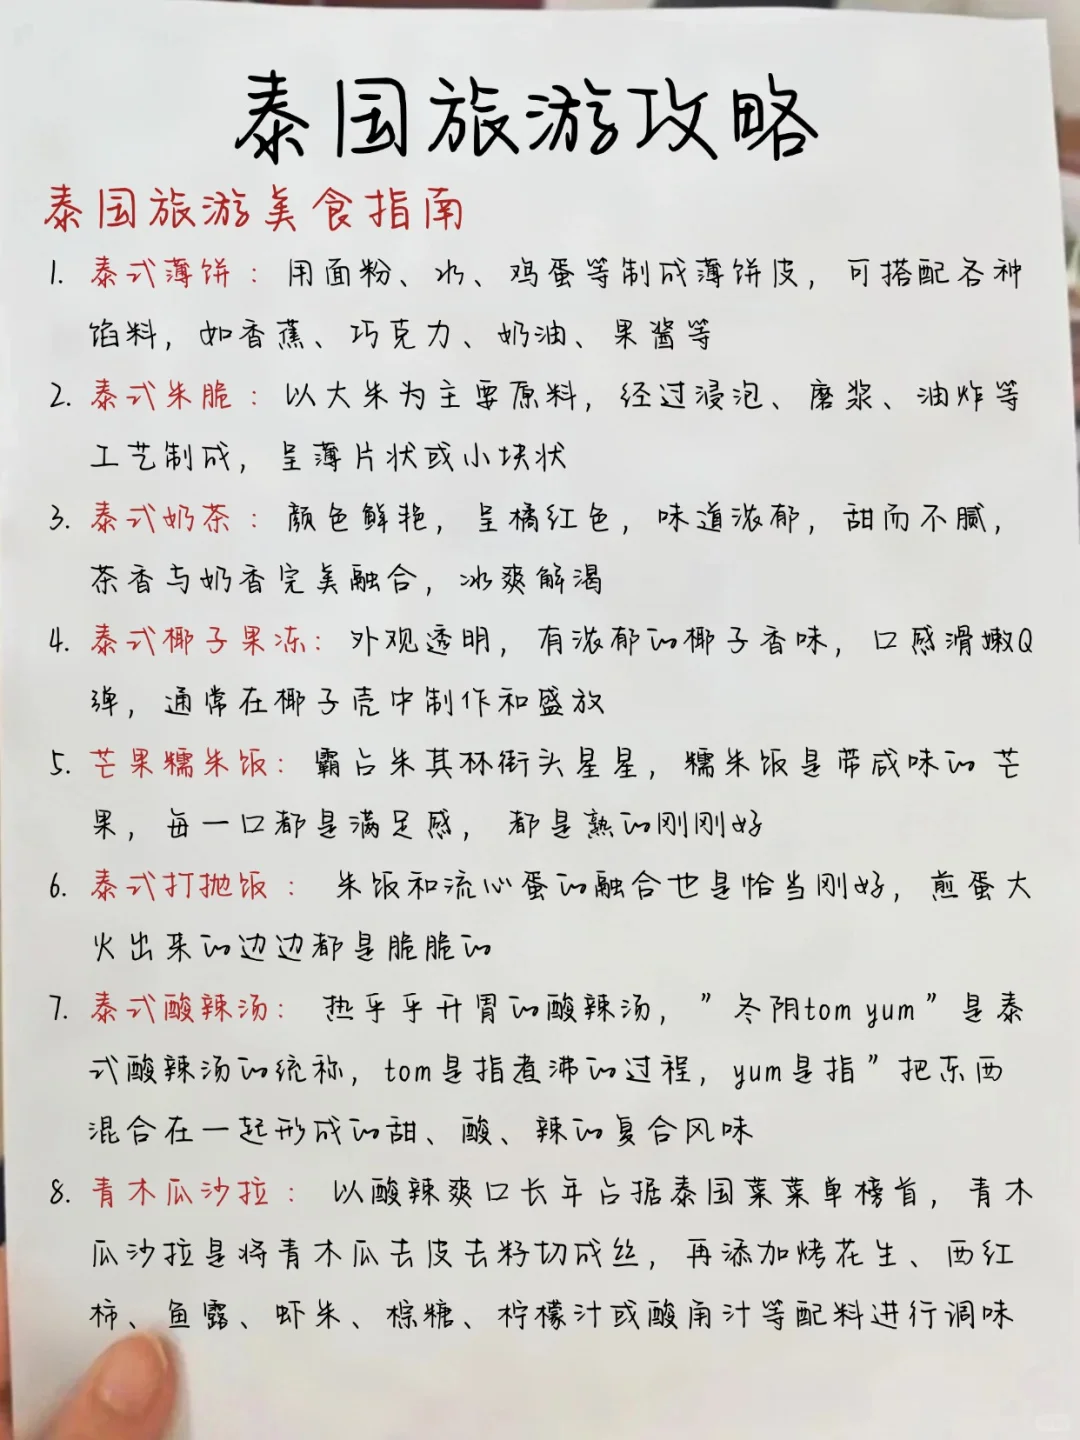 泰国旅游攻略
泰国旅游美食指南
1. 泰式薄饼：用面粉、水、鸡蛋等制成薄饼皮，可搭配各种
馅料，如香蕉、巧克力、奶油、果酱等
2. 泰式米脆：以大米为主要原料，经过浸泡、磨浆、油炸等
工艺制成，呈薄片状或小块状
3. 泰式奶茶：颜色鲜艳，呈橘红色，味道浓郁，甜而不腻，
茶香与奶香完美融合，冰爽解渴
4. 泰式椰子果冻：外观透明，有浓郁的椰子香味，口感滑嫩Q
弹，通常在椰子壳中制作和盛放
5. 芒果糯米饭：霸占米其林街头星星，糯米饭是带咸味的芒
果，每一口都是满足感，都是熟的刚刚好
6. 泰式打抛饭：米饭和流心蛋的融合也是恰当刚好，煎蛋大
火出来的边边都是脆脆的
7. 泰式酸辣汤：热乎乎开胃的酸辣汤，”冬阴tom yum”是泰
式酸辣汤的统称，tom是指煮沸的过程，yum是指”把东西
混合在一起形成的甜、酸、辣的复合风味
8. 青木瓜沙拉：以酸辣爽口长年占据泰国菜菜单榜首，青木
瓜沙拉是将青木瓜去皮去籽切成丝，再添加烤花生、西红
柿、鱼露、虾米、棕糖、柠檬汁或酸角汁等配料进行调味